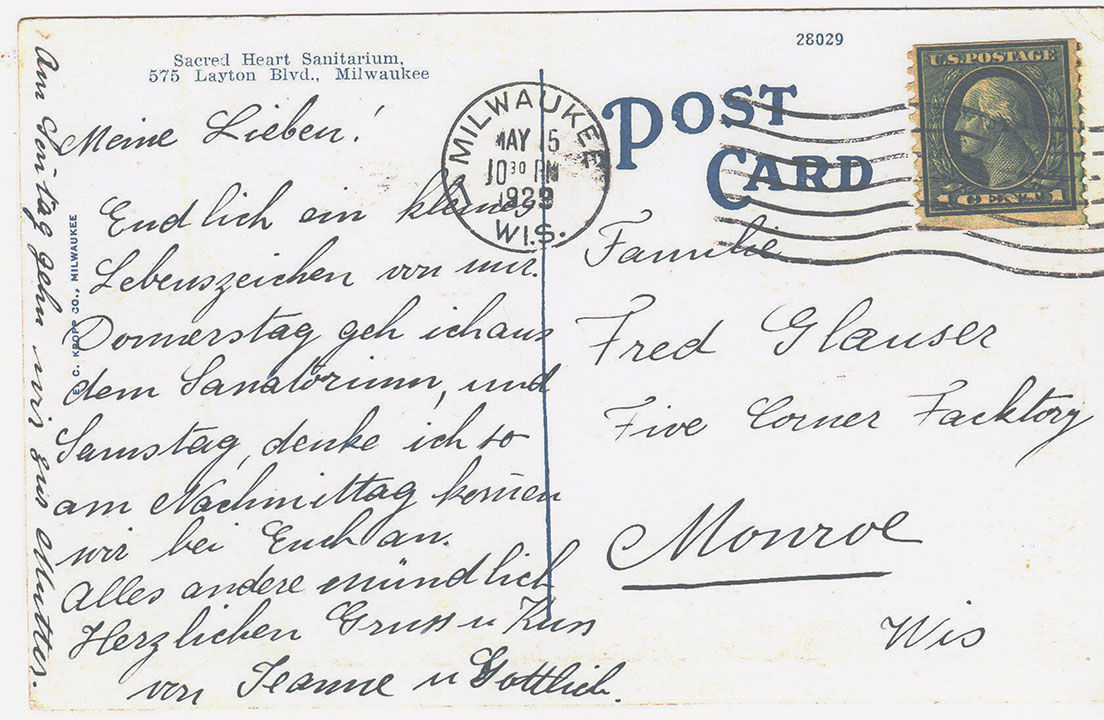 Sacred Heart Sanitarium,
575 Layton Blvd., Milwaukee
28029
POST
CARD
MILWAUKEE
MAY 15
10 30 PM
1929
WIS.
U.S. POSTAGE
1 CENT 1
E. C. KROPP CO., MILWAUKEE
Meine Lieben!
Endlich ein kleines
Lebenszeichen von mir.
Donnerstag geh ich aus
dem Sanatorium, und
Samstag, denke ich so
am Nachmittag kommen
wir bei Euch an.
Alles andere mündlich
Herzlichen Gruss u Kuss
von Jeanne u Gottlieb.
Am Sontag gehn wir zur Mutter.
Familie
Fred Glauser
Five Corner Facktory
Monroe
Wis